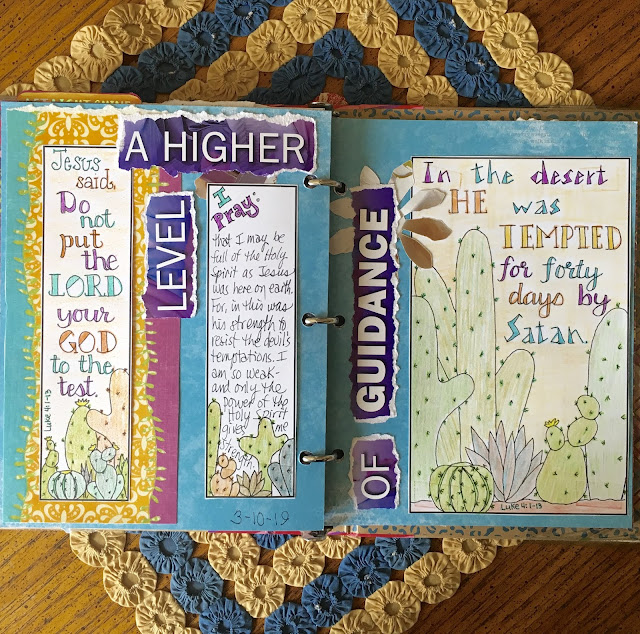 A HIGHER
LEVEL
OF
GUIDANCE
Jesus
said,
Do
not
put
the
LORD
your
GOD
to the
test.
Luke 4:1-13
I
Pray:
that I may be
full of the Holy
Spirit as Jesus
was here on earth.
For, in this was
his strength to
resist the devil's
temptations. I
am so weak-
and only the
power of the
Holy Spirit
gives me
strength
3-10-19
In the desert
HE was
TEMPTED
for forty
days by
Satan.
Luke 4:1-13